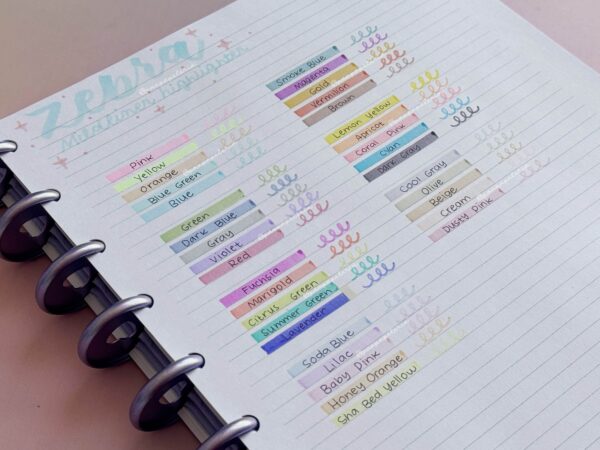 Zebra
Mildliner Highlighter
Pink
Yellow
Orange
Blue Green
Blue
Green
Dark Blue
Gray
Violet
Red
Fuchsia
Marigold
Citrus Green
Summer Green
Lavender
Soda Blue
Lilac
Baby Pink
Honey Orange
Sha Bed Yellow
Smoke Blue
Magenta
Gold
Vermilion
Brown
Lemon Yellow
Apricot
Coral Pink
Cyan
Dark Gray
Cool Gray
Olive
Beige
Cream
Dusty Pink